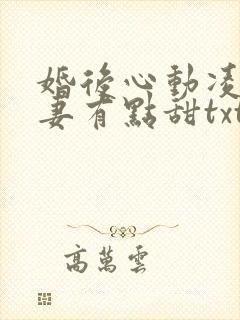 婚後心動凌
妻有點甜txt
高萬雲